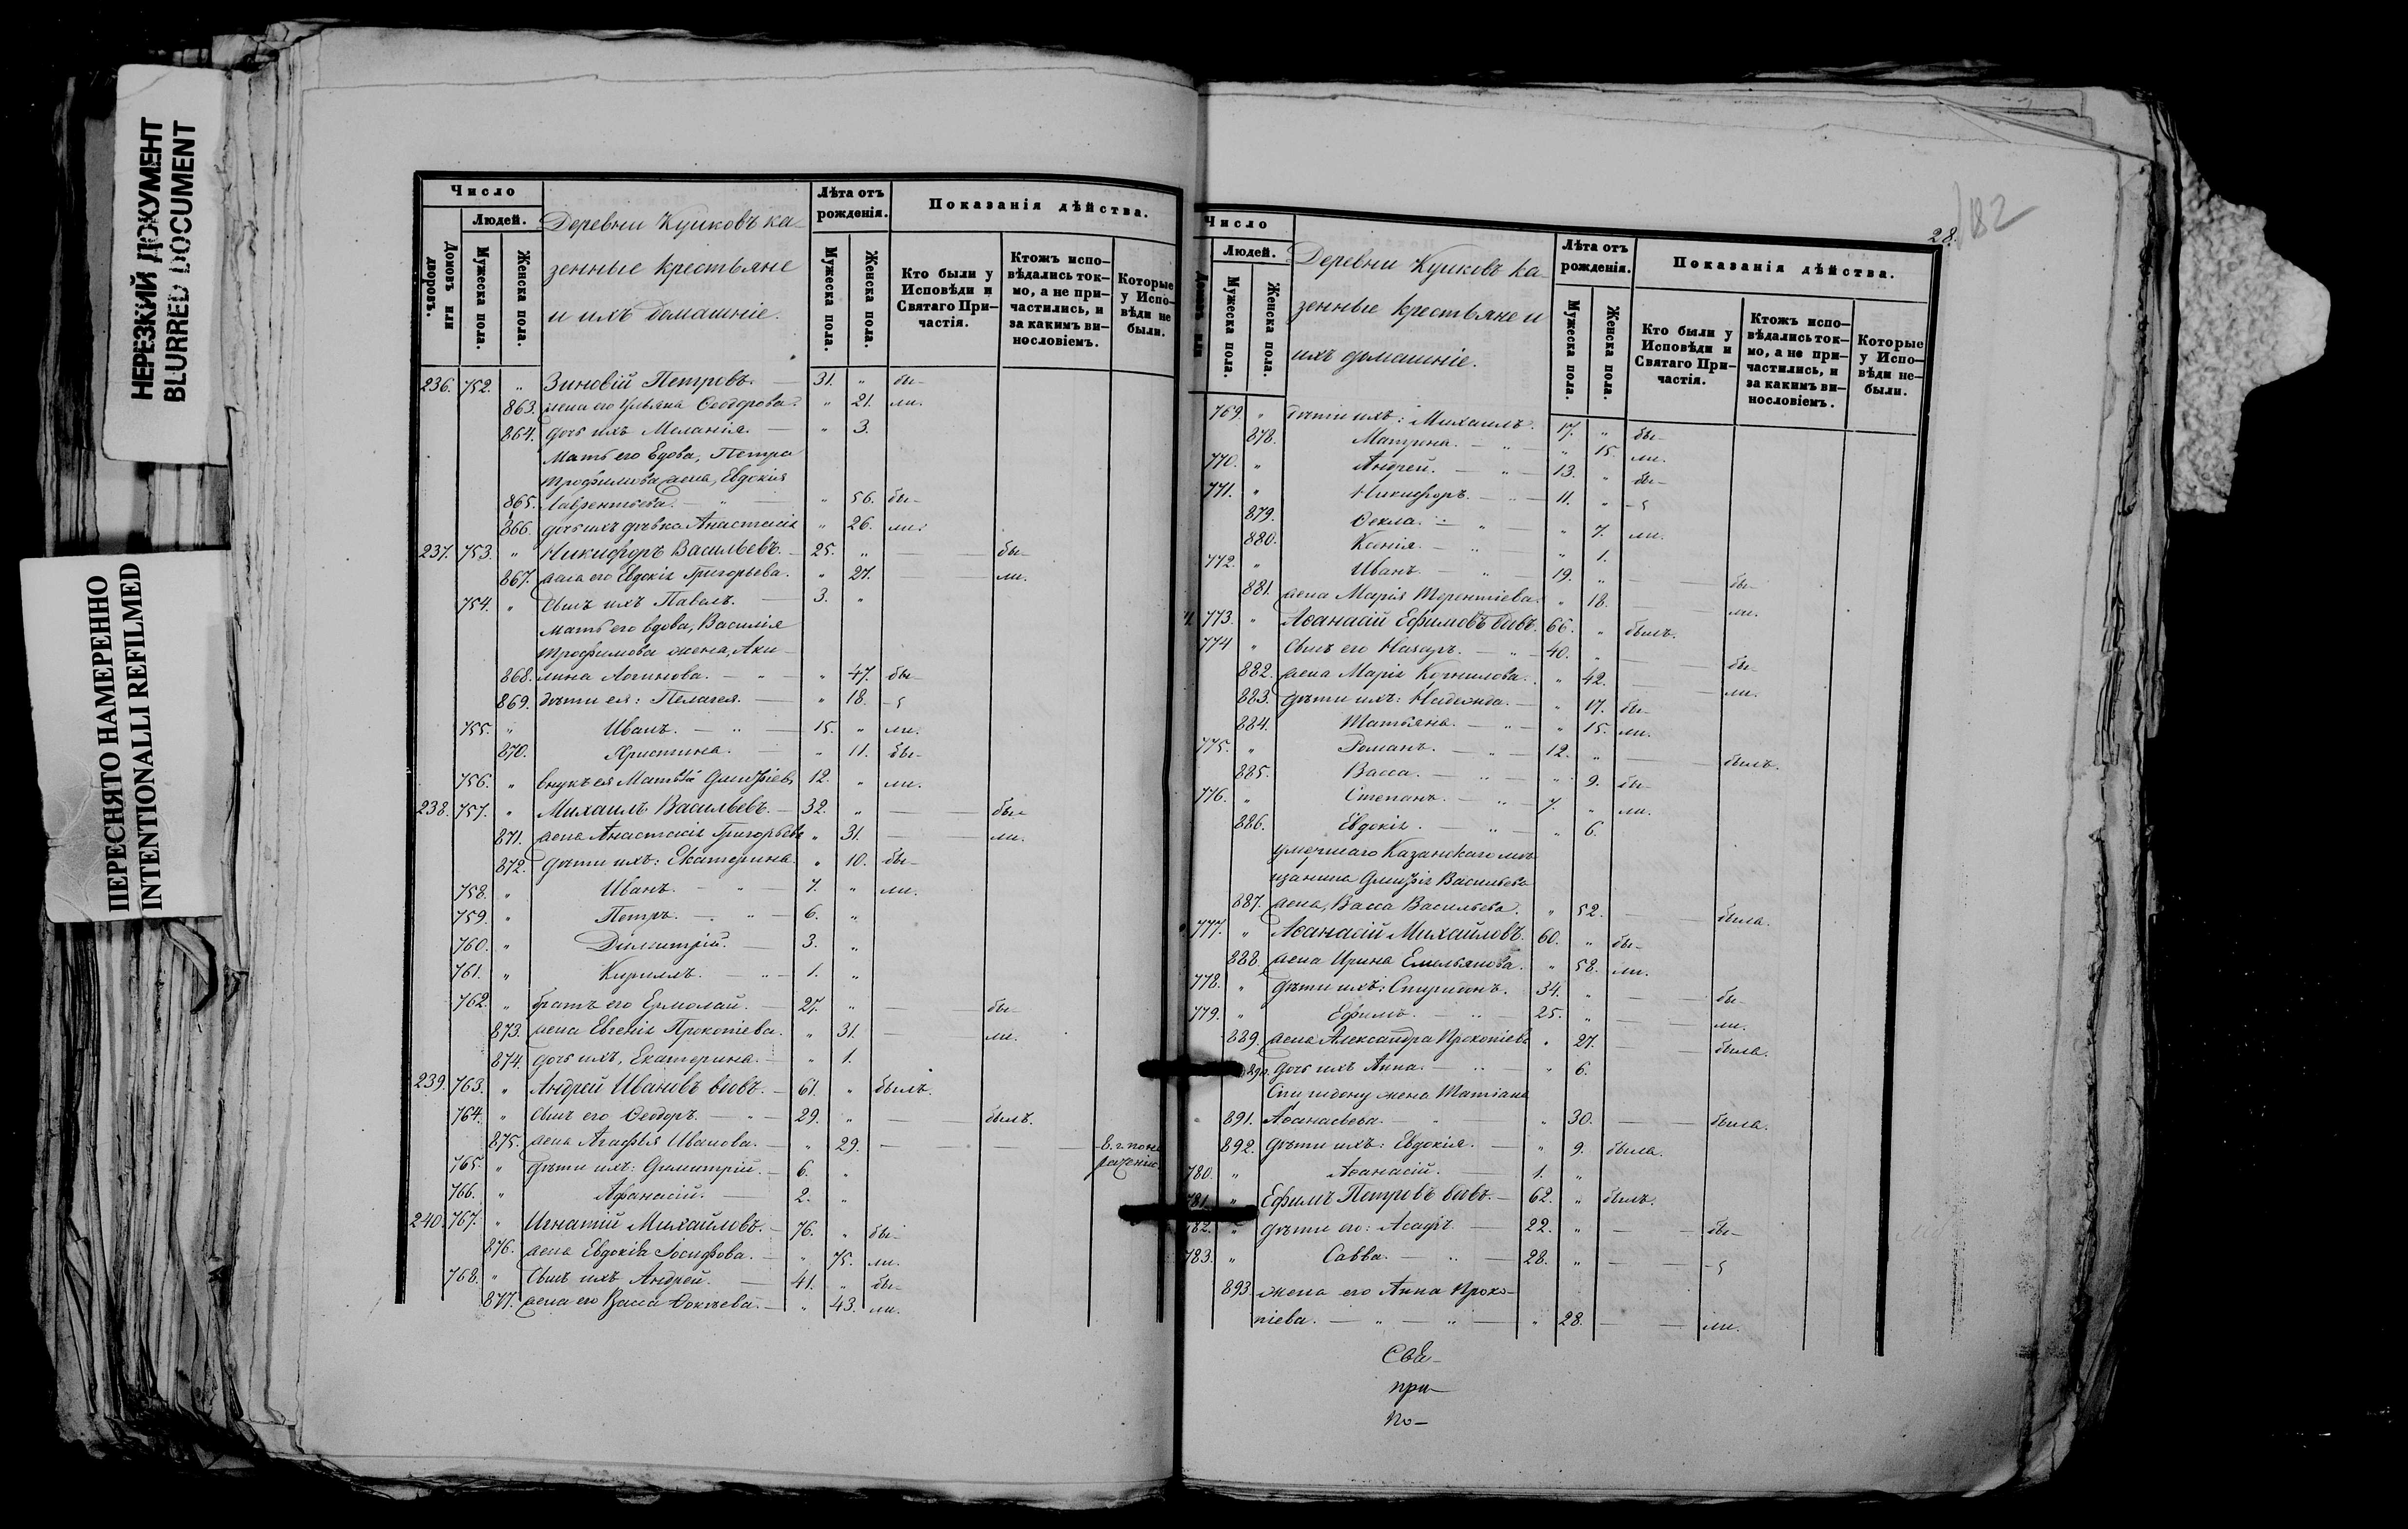 НЕРЕЗКИЙ ДОКУМЕНТ
BLURRED DOCUMENT
ПЕРЕСНЯТО НАМЕРЕННО
INTENTIONALLI REFILMED
Число
Людей.
Домовъ или дворовъ.
Мужеска пола.
Женска пола.
Деревни Куликовъ ка-
зенные крестьяне
и ихъ домашніе.
Лѣта отъ рожденія.
Мужеска пола.
Женска пола.
Показанія дѣйства.
Кто были у Исповѣди и Святаго При-частія.
Ктожъ испо-вѣдались ток-мо, а не при-частились, и за какимъ ви-нословіемъ.
Которые у Испо-вѣди не были.
236. 752. " Зиновій Петровъ. — 31. " бы-
863. жена его Ульяна Ѳеодорова. " 21. ли.
864. дочь ихъ Меланія. — " 3.
Мать его вдова, Петра
Трофимова жена, Евдокія
865. Лаврентьева. — " — " 56. бы-
866. дочь ихъ дѣвка Анастасія " 26. ли.
237. 753. " Никифоръ Васильевъ. — 25. " — — бы-
867. жена его Евдокія Григорьева. " 27. — — ли.
754. " Сынъ ихъ Павелъ. — 3. "
Мать его вдова, Василія
Трофимова жена, Аки-
868. лина Логинова. — " — " 47. бы-
869. дѣти ея: Пелагея. — " 18. —
755. " Иванъ. — " — 15. " ли.
870. Христина. — " 11. бы-
756. " внукъ ея Матвѣй 12. " ли.
238. 757. " Михаилъ Васильевъ. — 32. " — — бы-
871. жена Анастасія Григорьева " 31. — ли.
872. дѣти ихъ: Екатерина. " 10. бы-
758. " Иванъ. — " — 7. " ли.
759. " Петръ. — " — 6. "
760. " Димитрій. — 3. "
761. " Кириллъ. — " — 1. "
762. " братъ его Ермолай. — 27. " — — бы-
873. жена Евгенія Прокопіева. " 31. — ли.
874. дочь ихъ, Екатерина. — " 1.
239. 763. " Андрей Ивановъ вдовъ. — 61. " былъ.
764. " Сынъ его Ѳеодоръ. — " — 29. " — — былъ.
875. жена Агафья Иванова. — " 29. — — —
765. " дѣти ихъ: Димитрій. — 6. "
766. " Афанасій. — 2. "
240. 767. " Игнатій Михайловъ. — 76. " бы-
876. жена Евдокія Іосифова. — " 75. ли.
768. " Сынъ ихъ Андрей. — 41. " бы-
877. жена его Васса — " 43. ли.
182
28.
Число
Людей.
Мужеска пола.
Женска пола.
Деревни Куликовъ ка-
зенные крестьяне и
ихъ домашніе.
Лѣта отъ рожденія.
Мужеска пола.
Женска пола.
Показанія дѣйства.
Кто были у Исповѣди и Святаго При-частія.
Ктожъ испо-вѣдались ток-мо, а не при-частились, и за какимъ ви-нословіемъ.
Которые у Испо-вѣди не-были.
769. " дѣти ихъ: Михаилъ. 17. " бы-
878. Матрона. — " — " 15. ли.
770. " Андрей. — " — 13. " бы-
771. " Никифоръ. — " — 11. " —
879. Ѳекла. — " — " 7. ли.
880. Ксенія. — " — " 1.
772. " Иванъ. — " — 19. " — — бы-
881. жена Марія Терентіева. " 18. — — ли.
773. " Аѳанасій Ефимовъ вдовъ. 66. " былъ.
774 " Сынъ его Назаръ. — " — 40. " — — бы-
882. жена Марія Корнилова. " 42. — — ли.
883. дѣти ихъ: Надежда. — " 17. бы-
884. Татьяна. — " — " 15. ли.
775. " Романъ. — " — 12. " — — былъ.
885. Васса. — " — " 9. бы-
776. " Степанъ. — " — 7. " ли.
886. Евдокія. — " — " 6.
умершаго Казанскаго мѣ-
щанина Димитрія Васильева
887. жена, Васса Васильева. " 52. — — была.
777. " Аѳанасій Михайловъ. 60. " бы-
888. жена Ирина Емельянова. " 58. ли.
778. " дѣти ихъ: Спиридонъ. 34. " — — бы-
779. " Ефимъ. — " — 25. " — — ли.
889. жена Александра Прокопіева " 27. — — была.
890. дочь ихъ Анна. — " — " 6.
Спиридону жена Татіана
891. Аѳанасьева. — " — " 30. — — была.
892. дѣти ихъ: Евдокія. — " 9. была.
780. " Аѳанасій. — 1. "
781. " Ефимъ Петровъ вдовъ. — 62. " былъ.
782. " дѣти его: — 22. " — — бы-
783. " Савва. — " — 28. " — — —
893. жена его Анна Проко-
піева. — " — " — " 28. — — ли.
Свя-
при-
по-